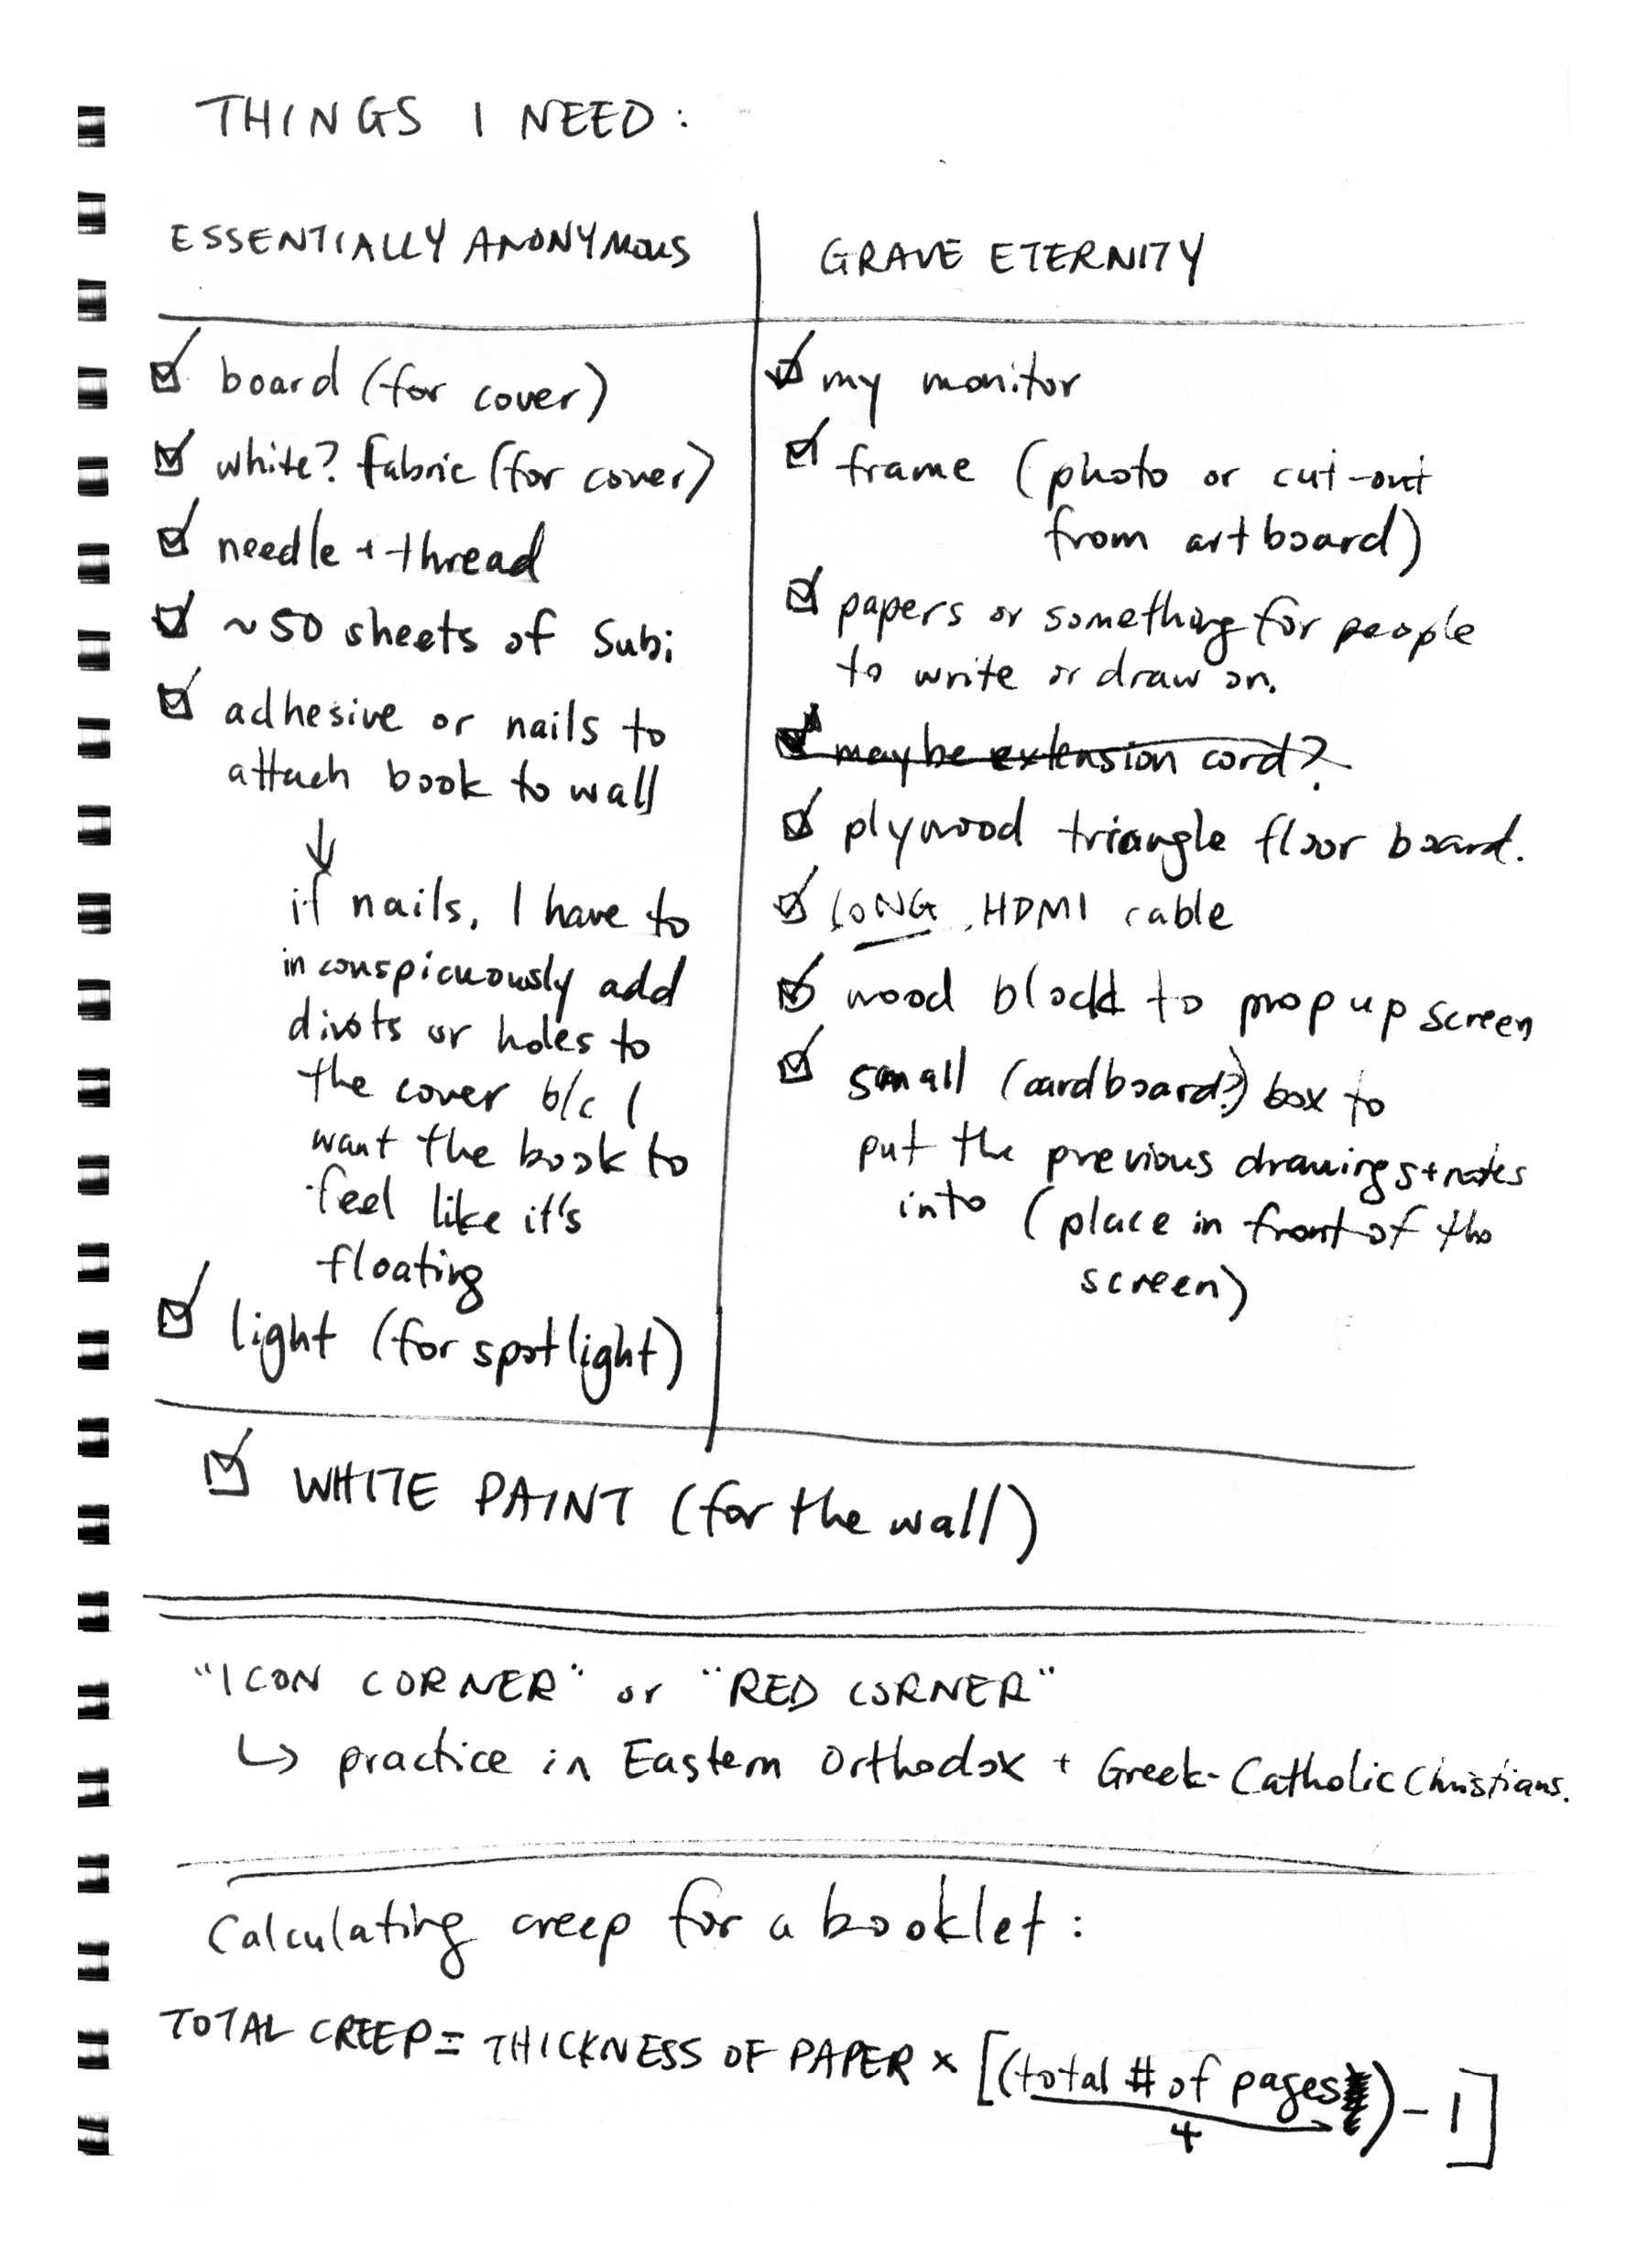 THINGS I NEED:
ESSENTIALLY ANONYMOUS
board (for cover)
white? fabric (for cover)
needle + thread
~50 sheets of Subi
adhesive or nails to
attach book to wall
↓
if nails, I have to
inconspicuously add
divots or holes to
the cover b/c I
want the book to
feel like it's
floating
light (for spotlight)
GRAVE ETERNITY
my monitor
frame (photo or cut-out
from artboard)
papers or something for people
to write or draw on.
maybe extension cord?
plywood triangle floor board.
LONG HDMI cable
wood block to prop up screen
small (cardboard?) box to
put the previous drawings + notes
into (place in front of the
screen)
WHITE PAINT (for the wall)
"ICON CORNER" or "RED CORNER"
↳ practice in Eastern Orthodox + Greek-Catholic Christians.
Calculating creep for a booklet:
TOTAL CREEP = THICKNESS OF PAPER × [(total # of pages) - 1]
4